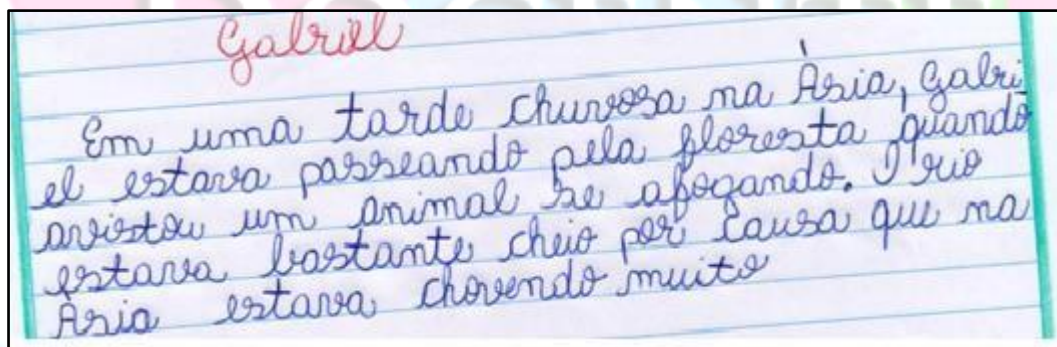 Gabriel
Em uma tarde chuvosa na Ásia, Gabri
el estava passeando pela floresta quando
avistou um animal se afogando. O rio
estava bastante cheio por causa que na
Ásia estava chovendo muito